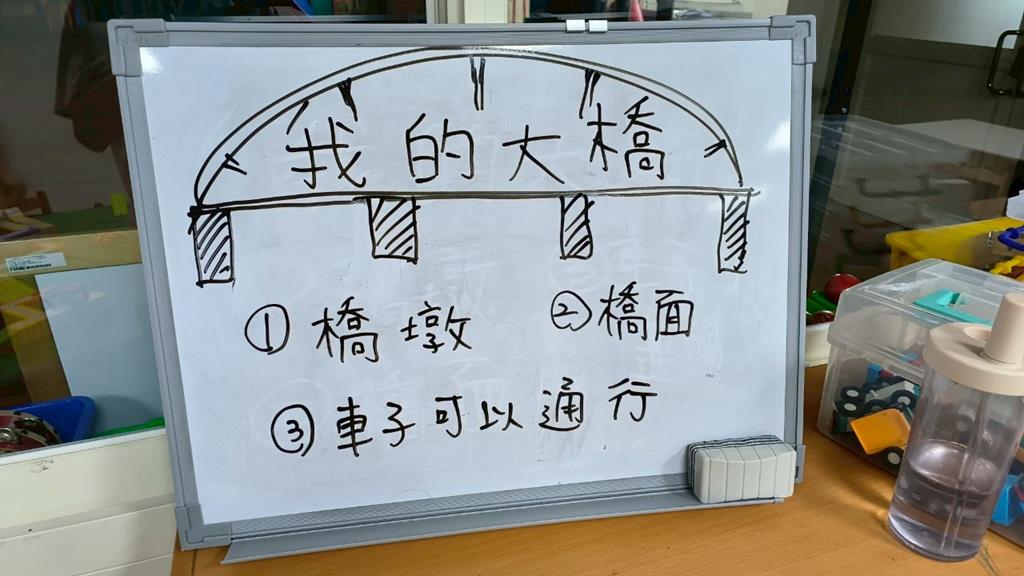 我的大橋
①橋墩 ②橋面
③車子可以通行